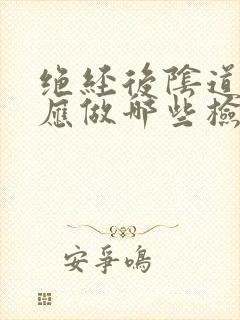 绝经後陰道
應做哪些檢
安爭鳴